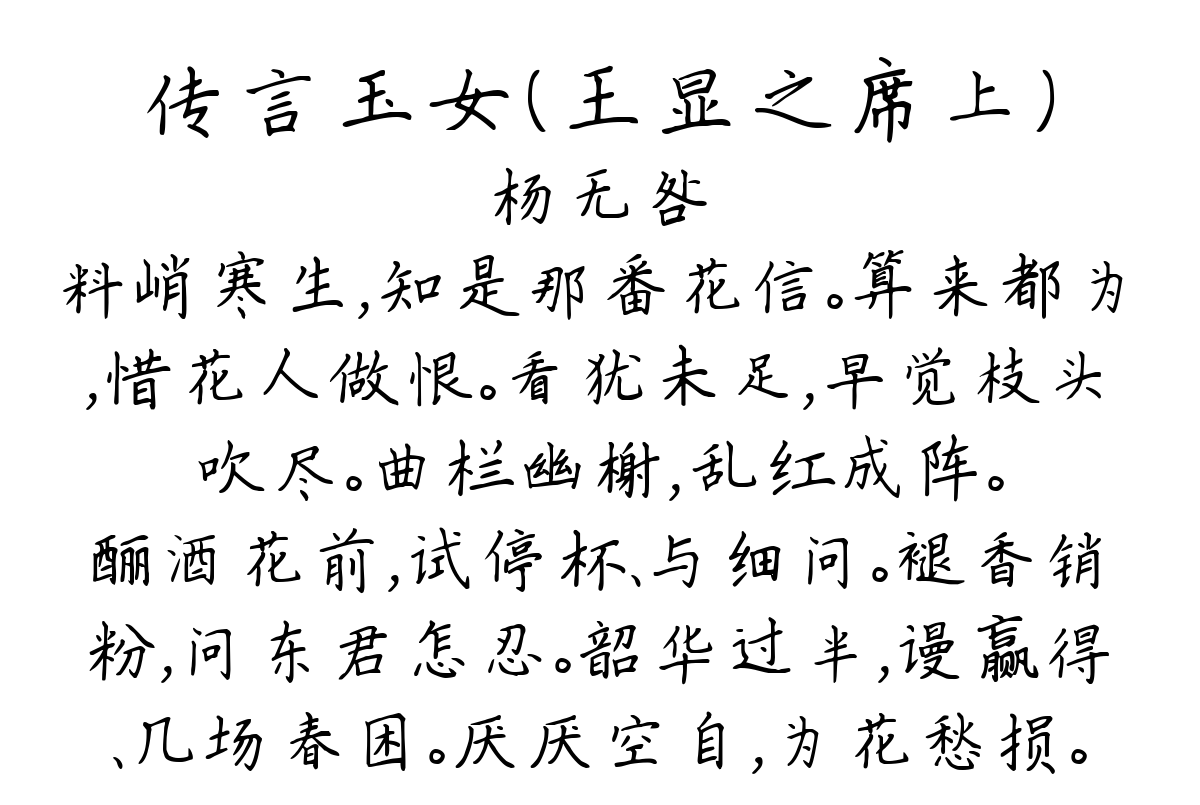 传言玉女(王显之席上)
杨无咎
料峭寒生,知是那番花信。算来都为
,惜花人做恨。看犹未足,早觉枝头
吹尽。曲栏幽榭,乱红成阵。
酾酒花前,试停杯、与细问。褪香销
粉,问东君怎忍。韶华过半,谩赢得
、几场春困。厌厌空自,为花愁损。